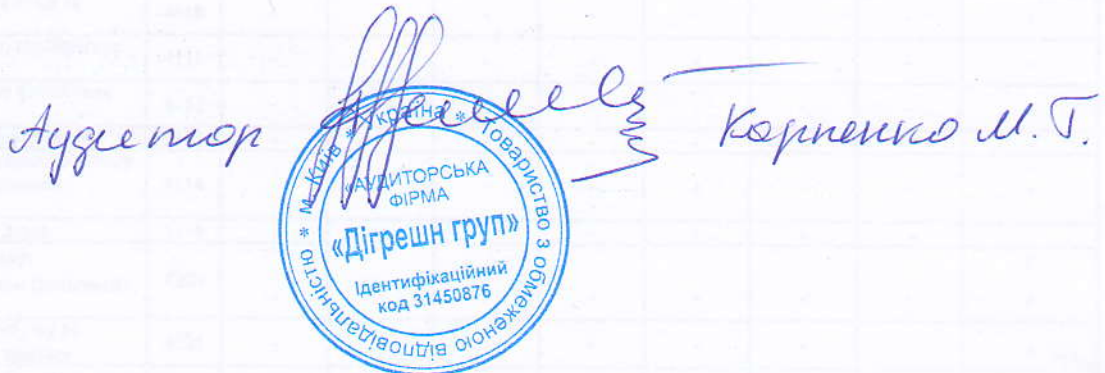 Аудитор
Карпенко М. Г.
* Україна * Товариство з обмеженою відповідальністю * м. Київ
«АУДИТОРСЬКА
ФІРМА
«Дігрешн груп»
Ідентифікаційний
код 31450876